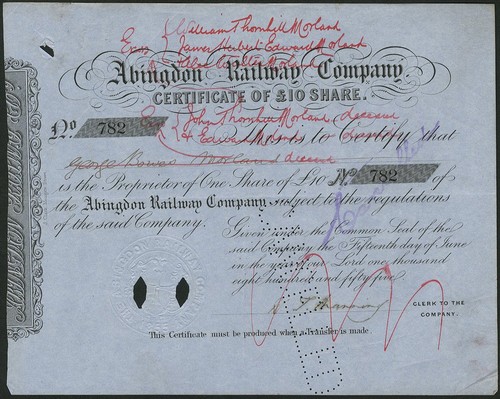 William Thornhill Morland
Exors James Herbert Edward Morland
Morland
Abingdon Railway Company.
CERTIFICATE OF £10 SHARE.
John Thornhill Morland, deceased
No 782 This is to Certify that
& Edward Morland
George Bowes Morland deceased
is the Proprietor of One Share of £10 No 782 of
the Abingdon Railway Company subject to the regulations
of the said Company.
Given under the Common Seal of the
said Company the Fifteenth day of June
in the year of our Lord one thousand
eight hundred and fifty five.
CLERK TO THE
COMPANY.
This Certificate must be produced when a Transfer is made